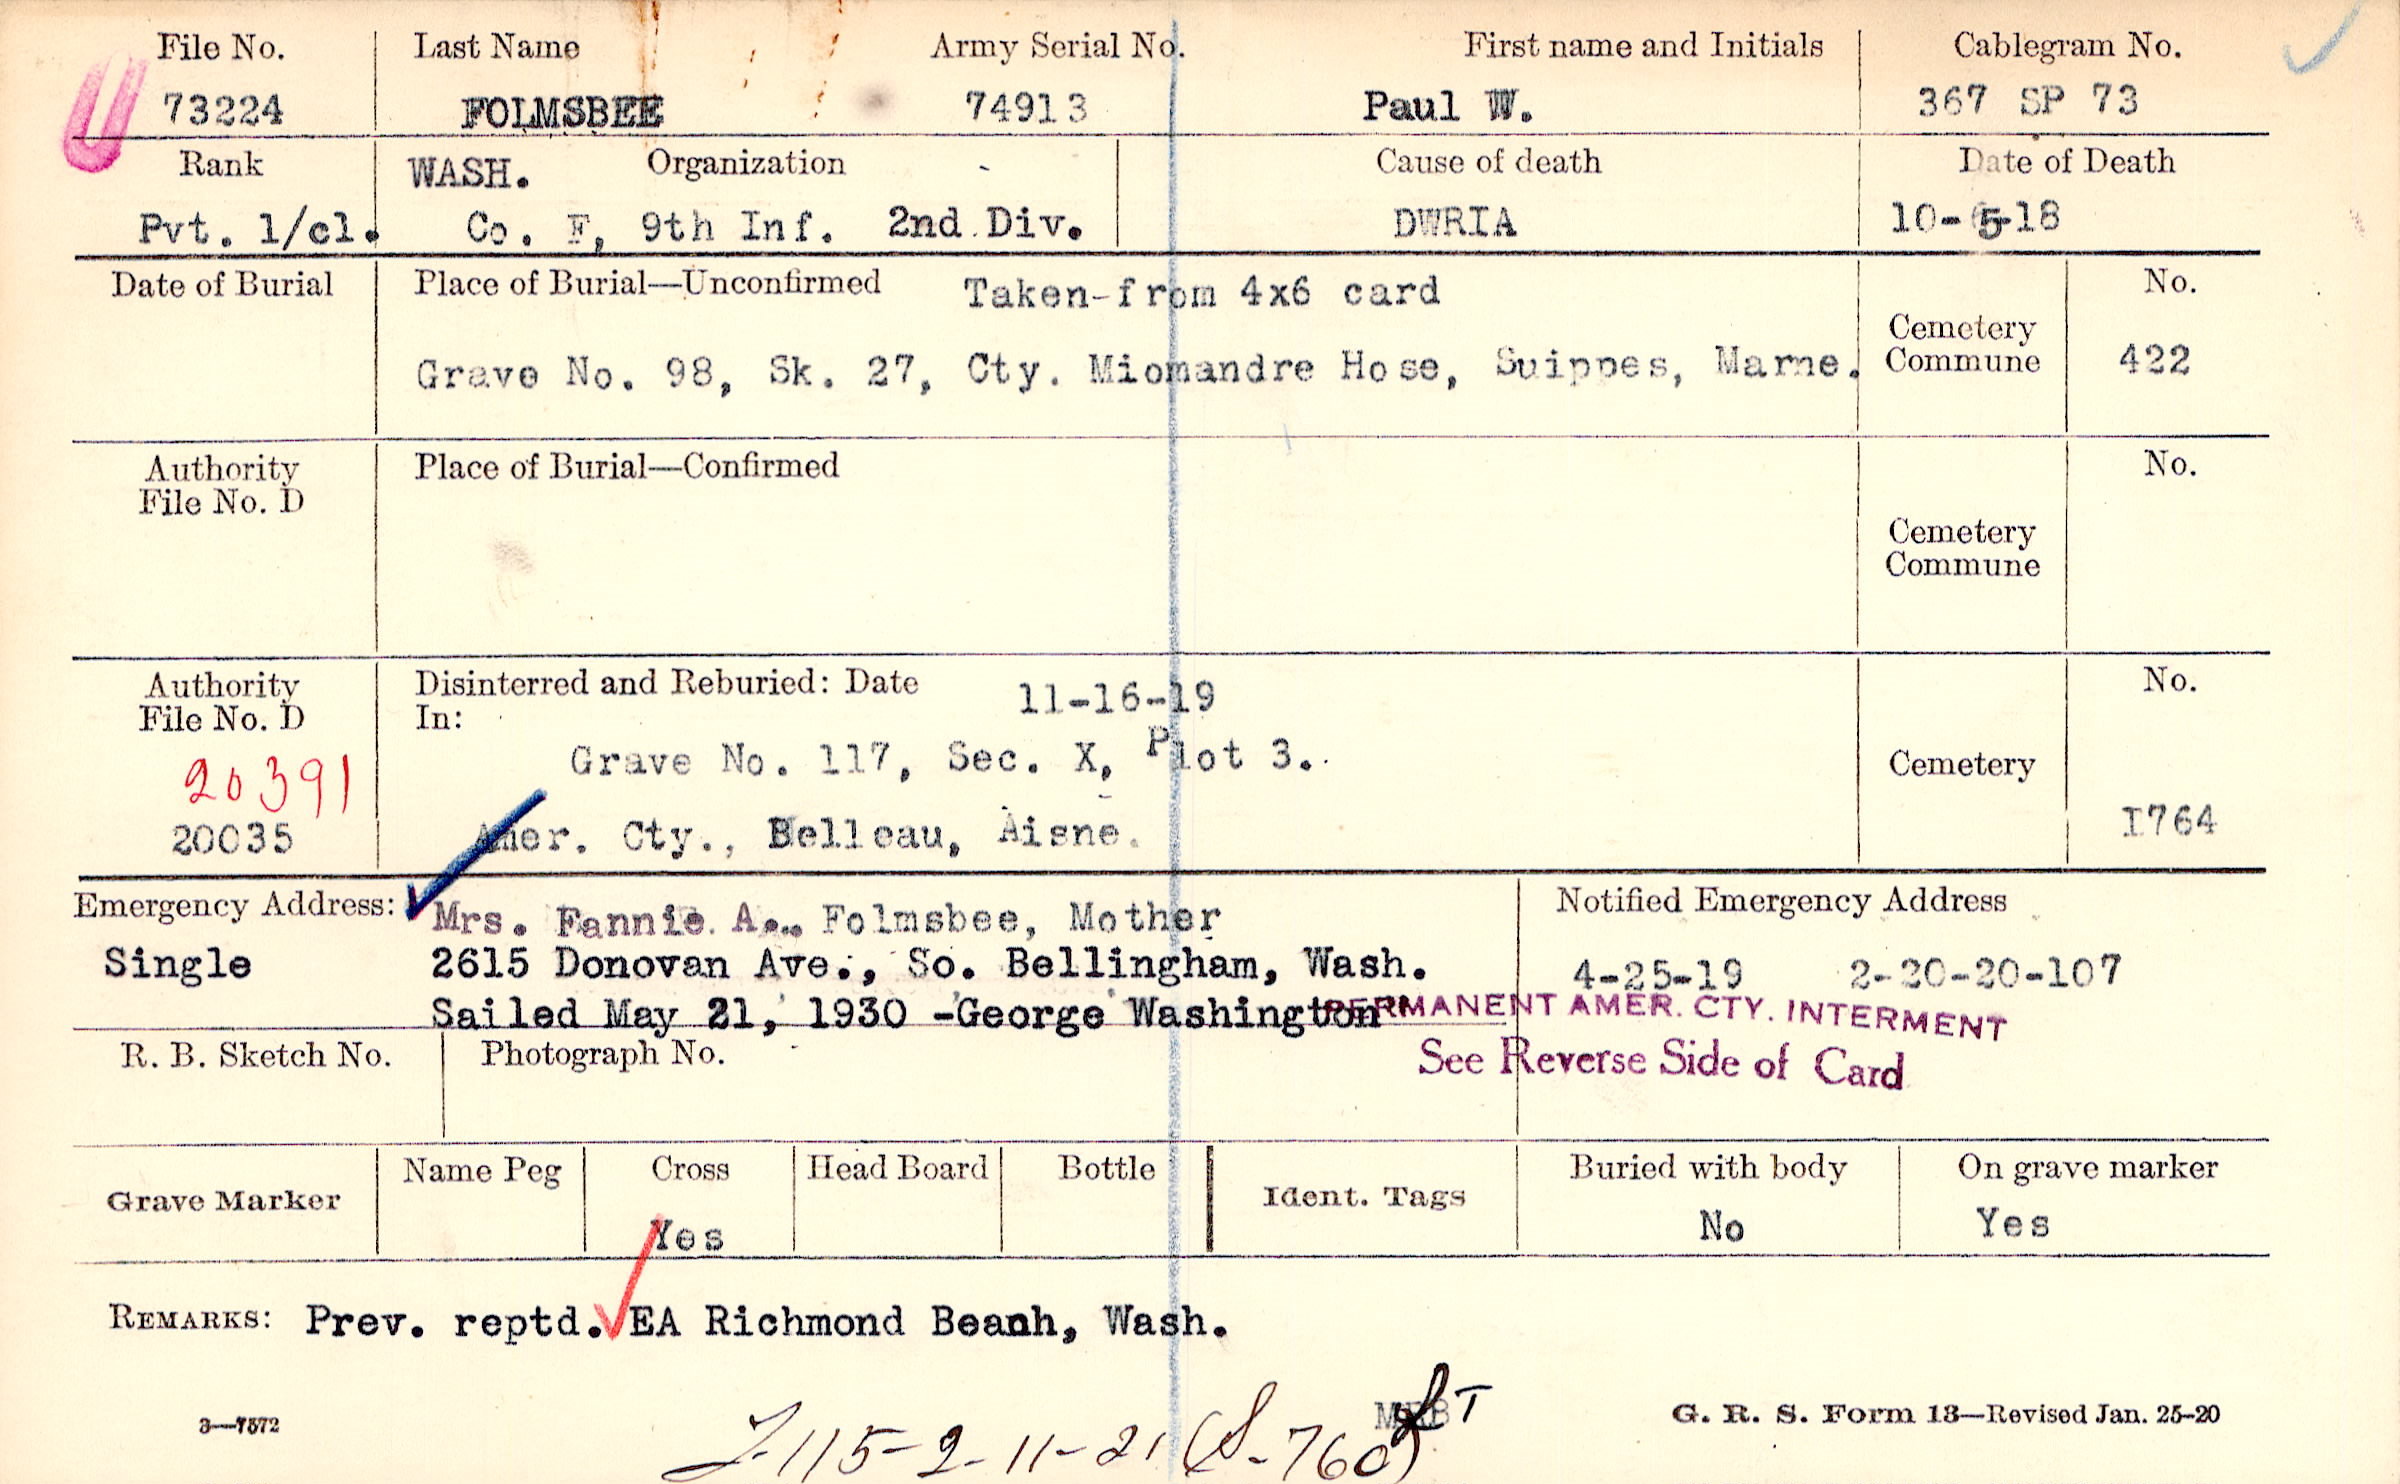 File No. Last Name Army Serial No. First name and Initials Cablegram No.
73224 FOLMSBEE 74913 Paul W. 367 SP 73
Rank WASH. Organization Cause of death Date of Death
Pvt. 1/cl. Co. F, 9th Inf. 2nd Div. DWRIA 10-5-18
Date of Burial Place of Burial—Unconfirmed Taken from 4x6 card No.
Cemetery
Grave No. 98, Sk. 27, Cty. Miomandre Hose, Suippes, Marne. Commune 422
Authority Place of Burial—Confirmed No.
File No. D
Cemetery
Commune
Authority Disinterred and Reburied: Date 11-16-19 No.
File No. D In:
20391 Grave No. 117, Sec. X, Plot 3. Cemetery
20035 Amer. Cty., Belleau, Aisne. 1764
Emergency Address: Mrs. Fannie A. Folmsbee, Mother Notified Emergency Address
Single 2615 Donovan Ave., So. Bellingham, Wash. 4-25-19 2-20-20-107
Sailed May 21, 1930 -George Washington PERMANENT AMER. CTY. INTERMENT
R. B. Sketch No. Photograph No. See Reverse Side of Card
Grave Marker Name Peg Cross Head Board Bottle Ident. Tags Buried with body On grave marker
Yes No Yes
REMARKS: Prev. reptd. EA Richmond Beach, Wash.
3—7572 G. R. S. Form 13—Revised Jan. 25-20
115-2-11-21 (S-760)